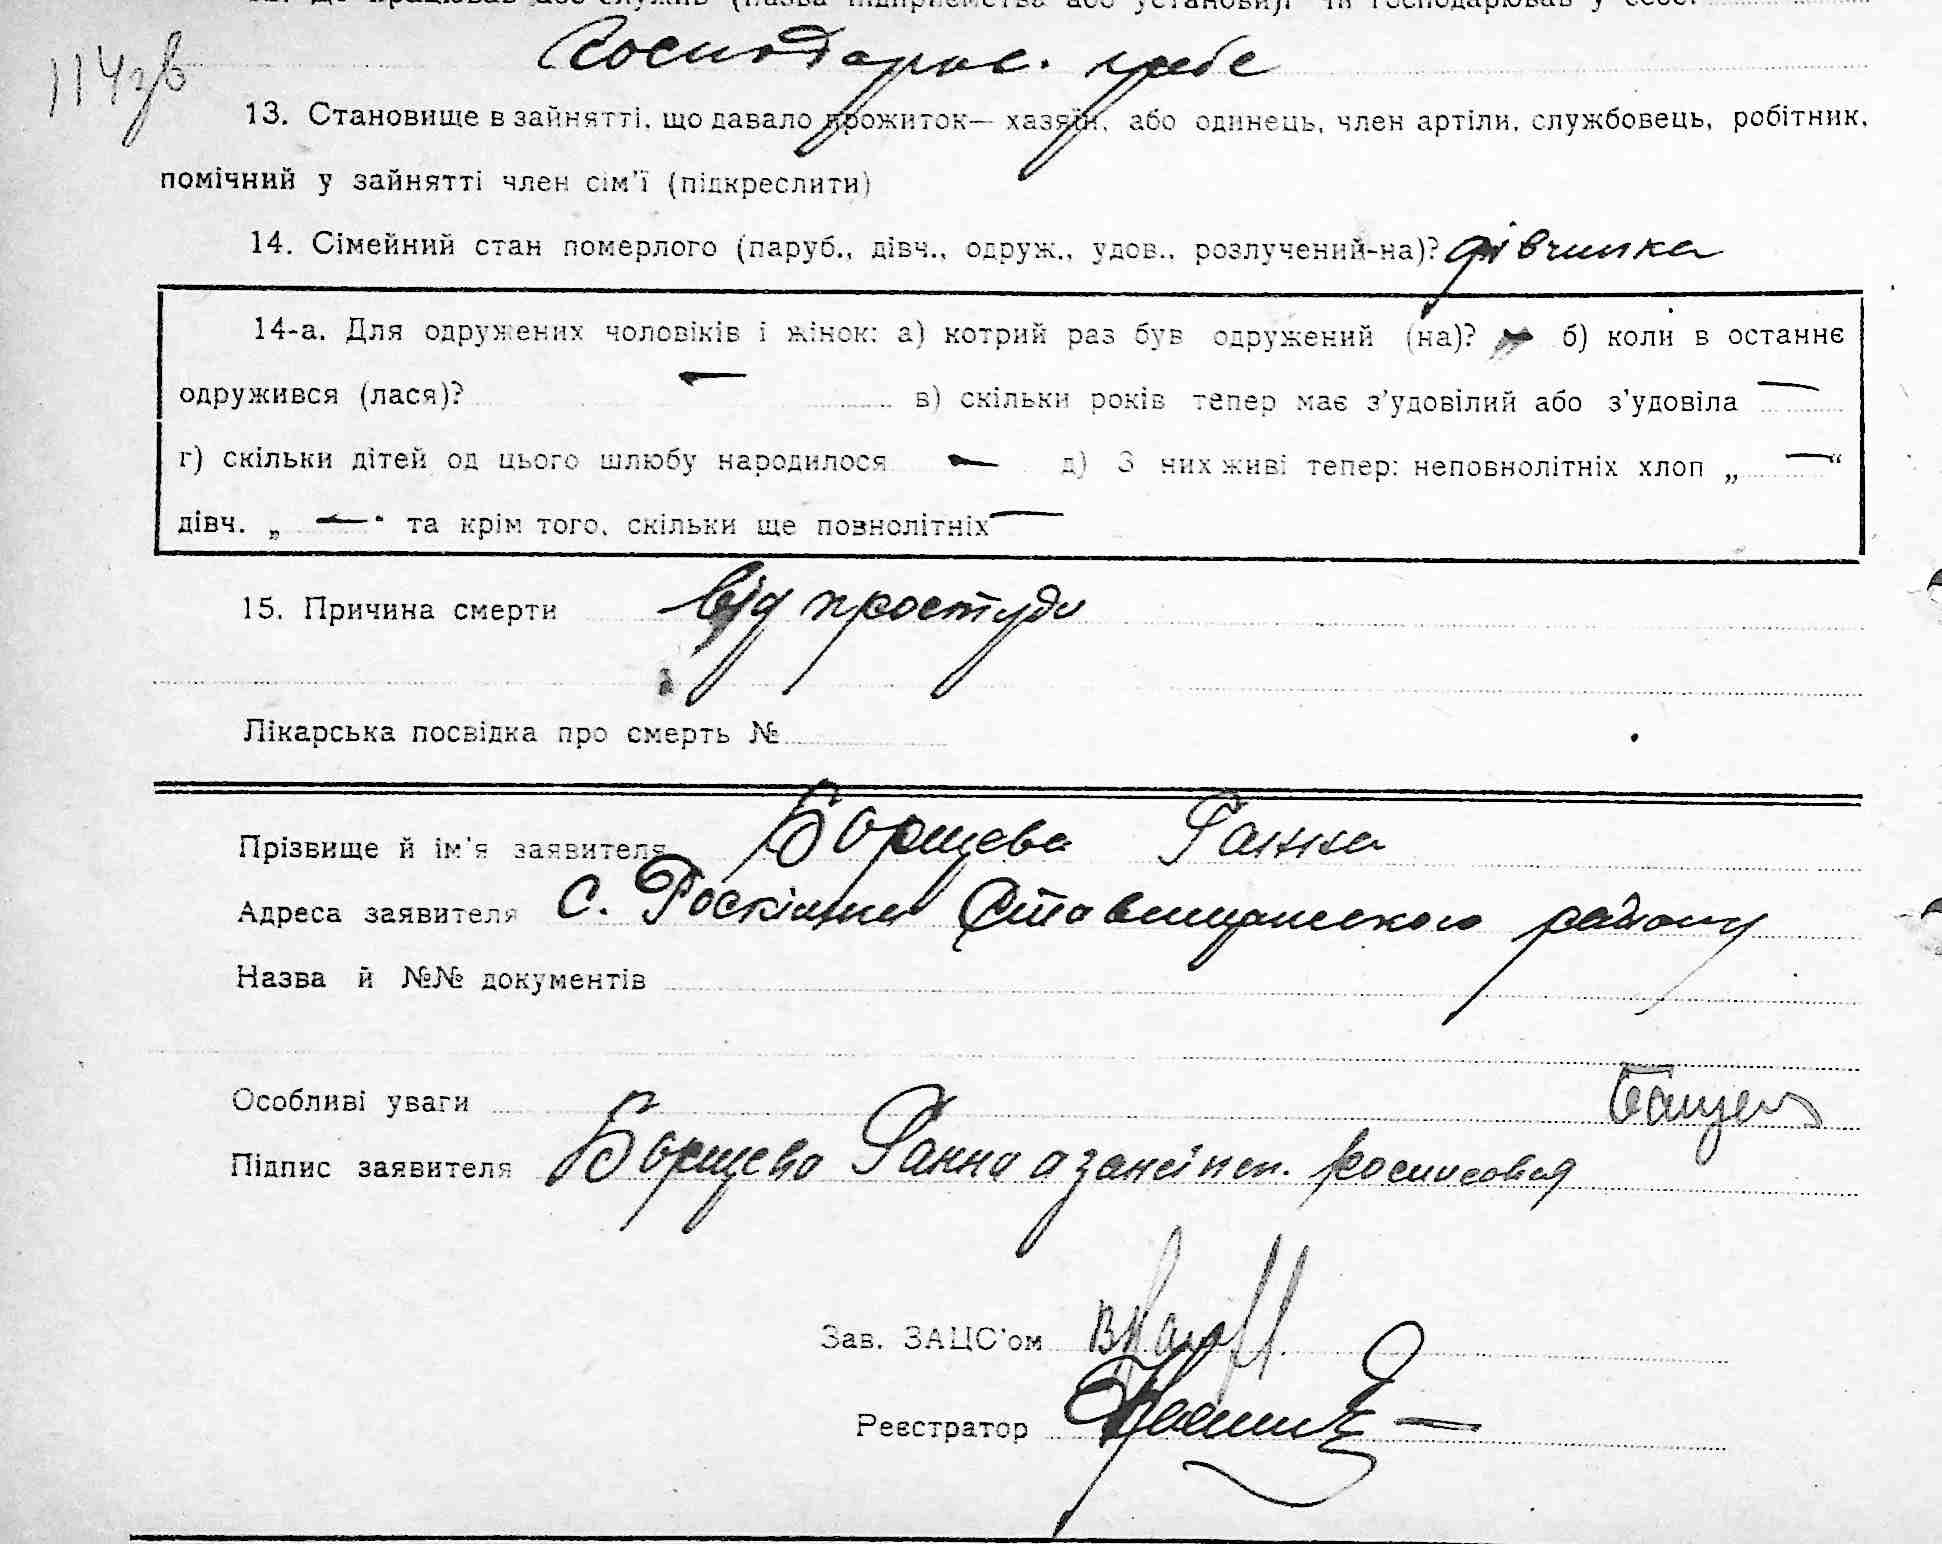 12. Де працював або служив (назва підприємства або установи). Чи господарював у себе.
114зв
Господарює. у себе
13. Становище в зайнятті, що давало прожиток— хазяїн, або одинець, член артіли, службовець, робітник,
помічний у зайнятті член сім'ї (підкреслити)
14. Сімейний стан померлого (паруб., дівч., одруж., удов., розлучений-на)? дівчинка
14-а. Для одружених чоловіків і жінок: а) котрий раз був одружений (на)? б) коли в останнє
одружився (лася)? — в) скільки років тепер має з'удовілий або з'удовіла —
г) скільки дітей од цього шлюбу народилося — д) З них живі тепер: неповнолітніх хлоп „ — “
дівч. „ — " та крім того, скільки ще повнолітніх —
15. Причина смерти від простуди
Лікарська посвідка про смерть №
Прізвище й ім'я заявителя Борщева Ганна
Адреса заявителя с. Роскішна Ставищанського району
Назва й №№ документів
Особливі уваги
Підпис заявителя Борщева Ганна а за неї неп. росписовся
Зав. ЗАЦС'ом
Реєстратор